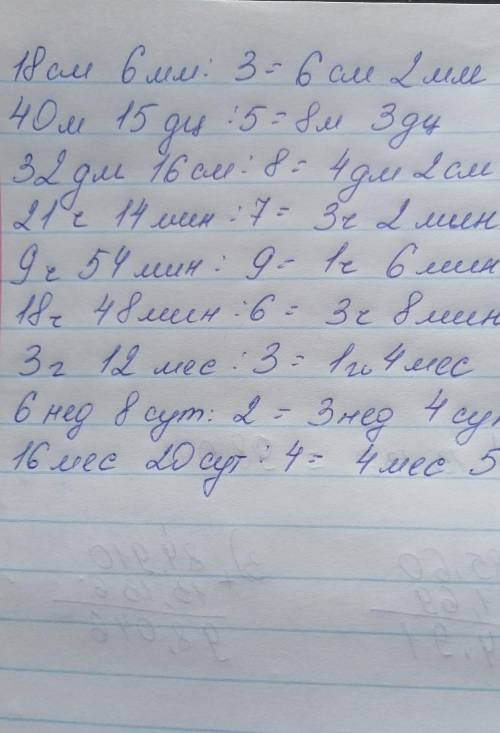 18см 6мм : 3 = 6см 2мм
40м 15дц : 5 = 8м 3дц
32дм 16см : 8 = 4дм 2см
21ч 14мин : 7 = 3ч 2мин
9ч 54мин : 9 = 1ч 6мин
18ч 48мин : 6 = 3ч 8мин
3г 12мес : 3 = 1г. 4мес
6нед 8сут : 2 = 3нед 4сут
16мес 20сут : 4 = 4мес 5